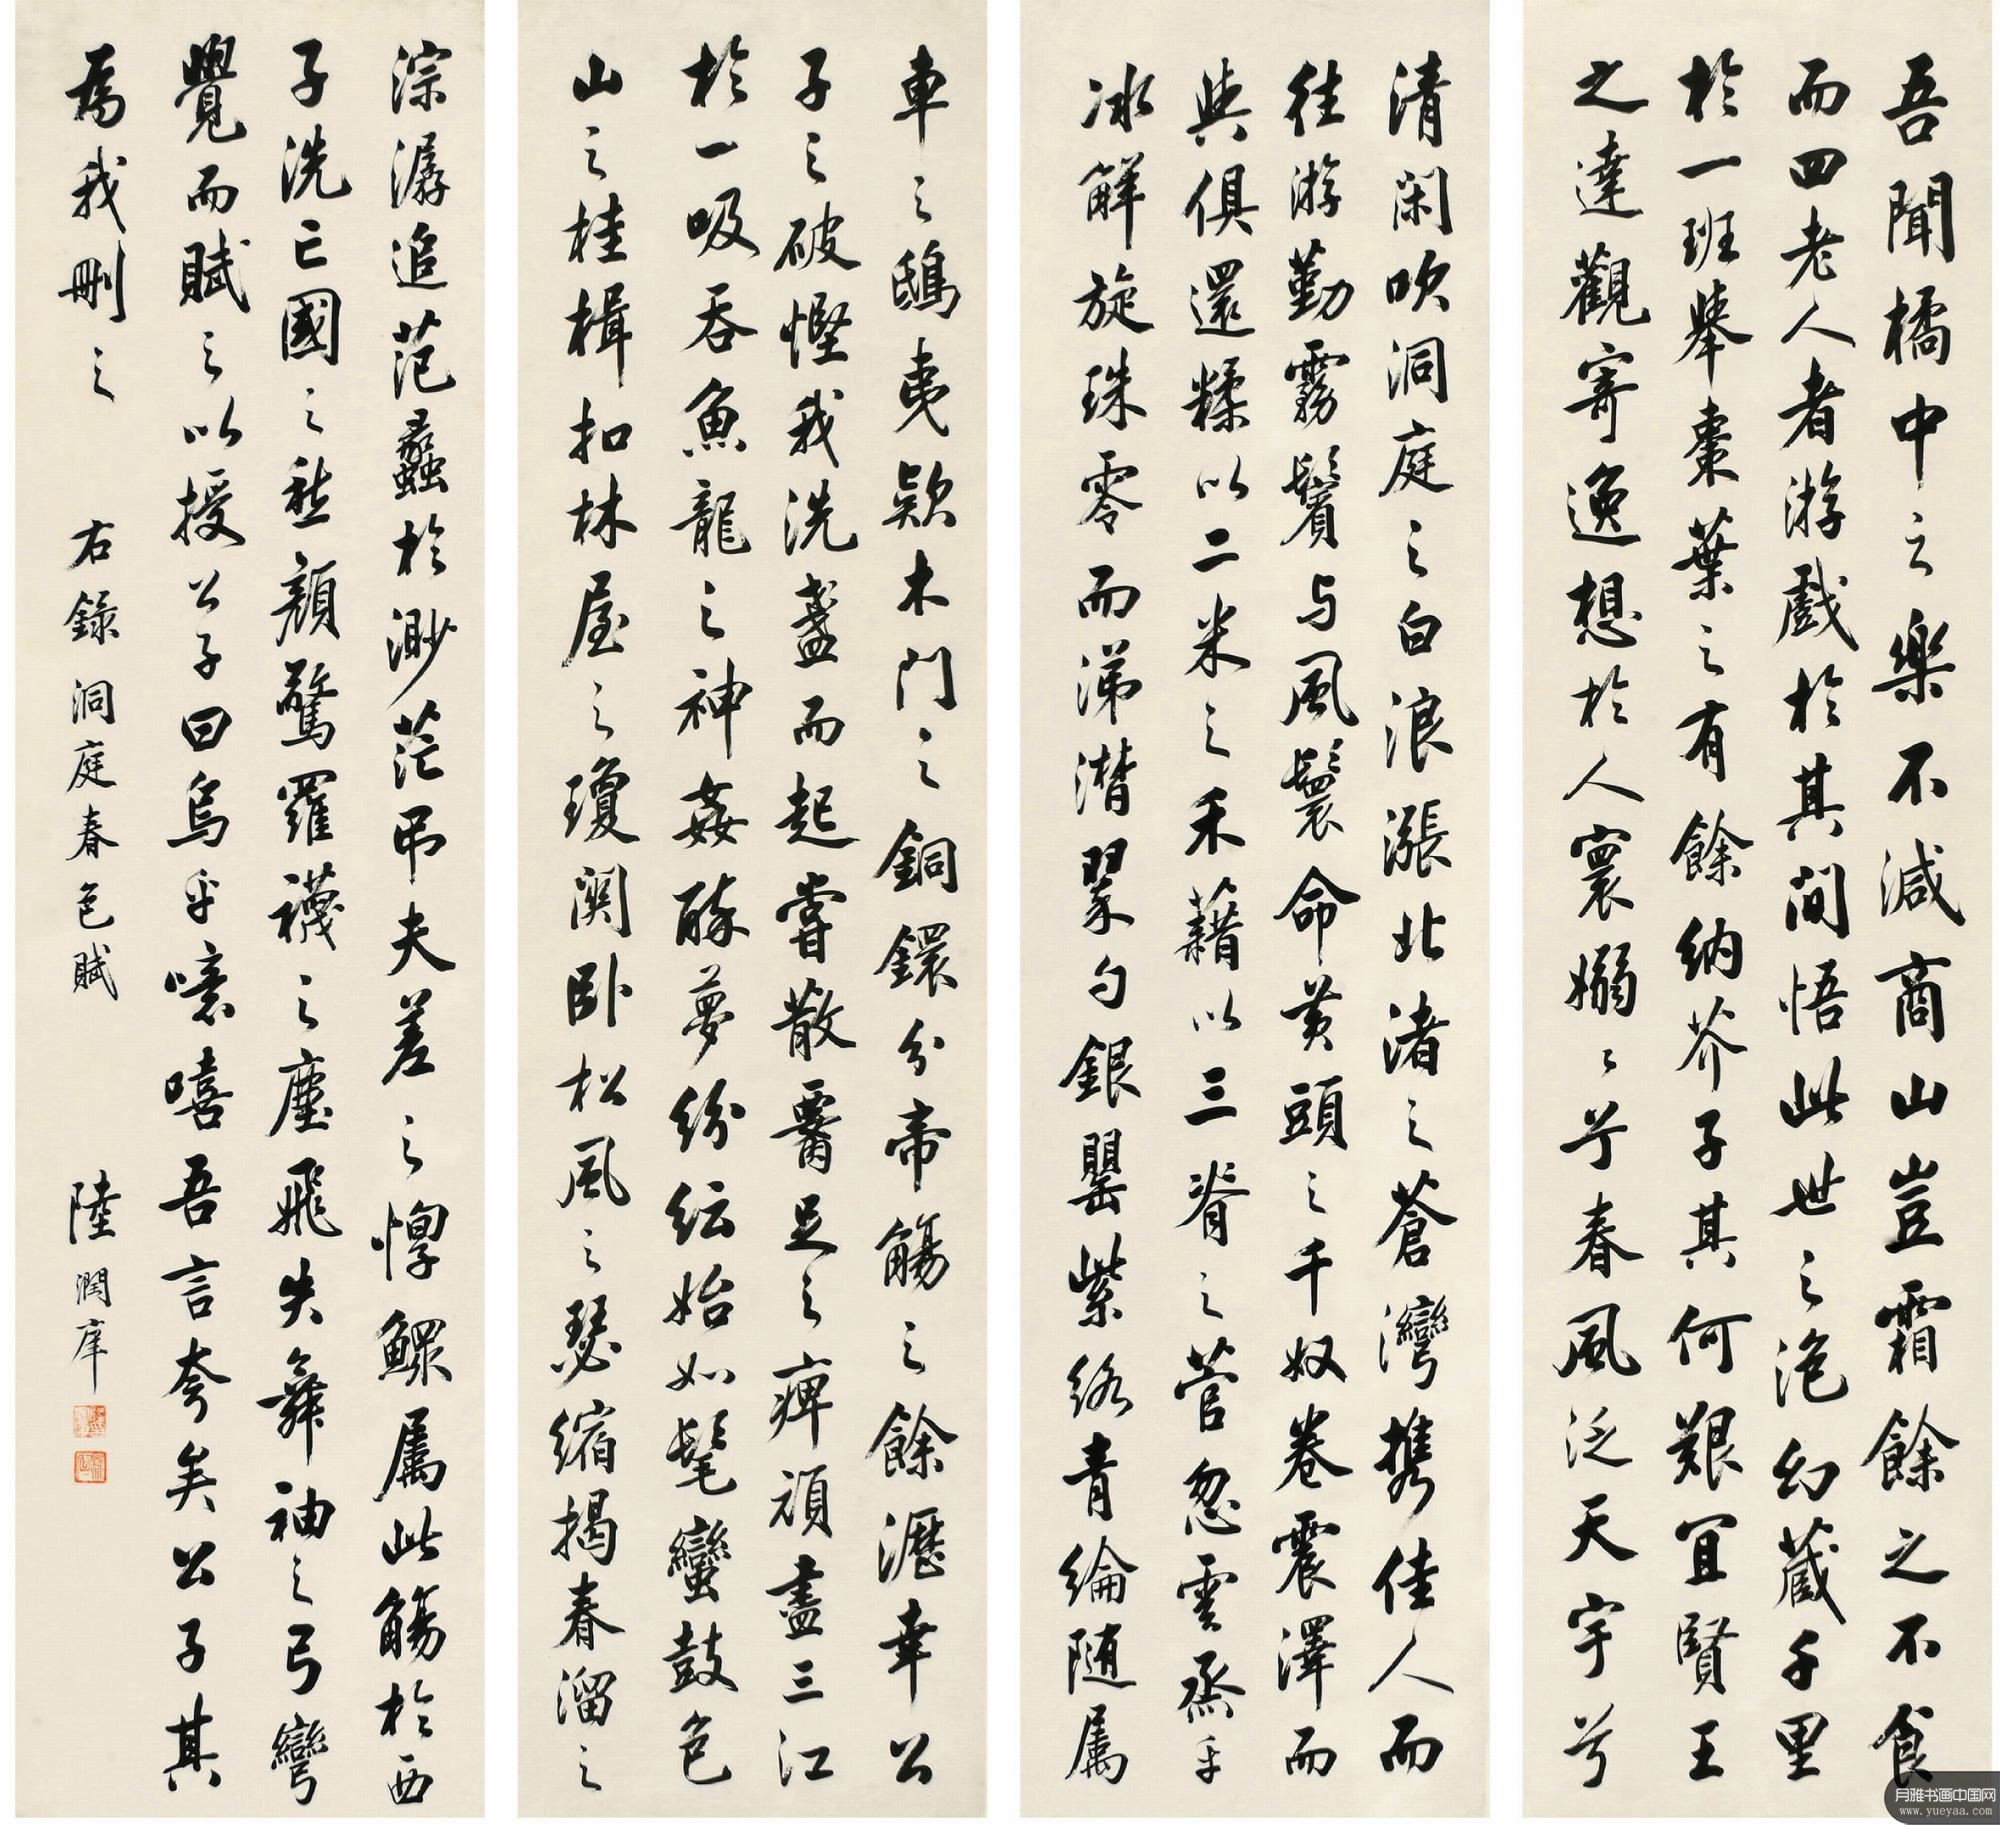 吾聞橘中之樂不減商山豈霜餘之不食
而四老人者游戲於其間悟此世之泡幻藏千里
於一班舉棗葉之有餘納芥子其何艱宜賢王
之達觀寄逸想於人寰嫋〻兮春風泛天宇兮
清閑吹洞庭之白浪漲北渚之蒼灣携佳人而
往游勤霧鬢与風鬟命黃頭之千奴卷震澤而
與俱還糅以二米之禾藉以三脊之菅忽雲烝乎
冰解旋珠零而涕潸翠勺銀罌紫絡青綸随屬
車之鴟夷款木門之銅鐶分帝觴之餘瀝幸公
子之破慳我洗盞而起嘗散腰足之痺頑盡三江
於一吸吞魚龍之神姦醉夢紛紜始如髦蠻鼓包
山之桂楫扣林屋之瓊關卧松風之瑟縮揭春溜之
淙潺追范蠡於渺茫吊夫差之惸鰥屬此觴於西
子洗亡國之愁顏驚羅襪之塵飛失舞袖之弓彎
覺而賦之以授公子曰烏乎噫嘻吾言夸矣公子其
為我刪之 右錄洞庭春色賦 陸潤庠
月雅书画中国网
www.yueyaa.com